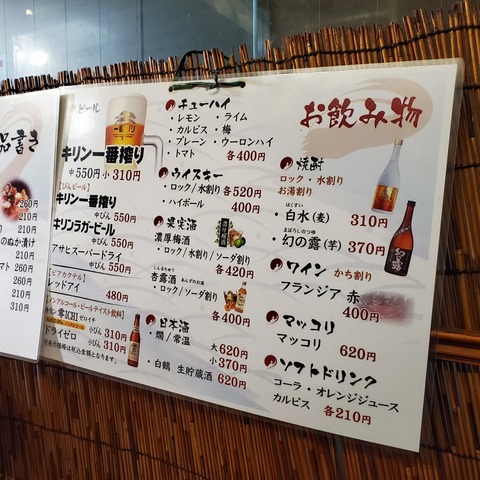 品書き
260円
210円
260円
210円
のぬか漬け
310円
マト 260円
310円
310円
210円
310円
ビール
一番搾り
キリン一番搾り
中 550円 小 310円
【びんビール】
キリン一番搾り
中びん 550円
キリンラガービール
中びん 550円
アサヒスーパードライ
中びん 550円
【ビアカクテル】
レッドアイ
480円
【ノンアルコール・ビールテイスト飲料】
キリン 零ICHI ゼロイチ
小びん 310円
ドライゼロ
小びん 310円
チューハイ
・レモン ・ライム
・カルピス ・梅
・プレーン ・ウーロンハイ
・トマト 各400円
ウイスキー
・ロック/水割り 各520円
・ハイボール 400円
果実酒
濃厚梅酒
・ロック/水割り/ソーダ割り
各420円
しんるちゅう あんずのお酒
杏露酒
・ロック/ソーダ割り
各400円
日本酒
・燗/常温
大 620円
小 370円
・白鶴 生貯蔵酒 620円
お飲み物
焼酎
ロック・水割り
お湯割り
はくすい
・白水(麦) 310円
まぼろしのつゆ
・幻の露(芋) 370円
ワイン かち割り
フランジア 赤
400円
マッコリ
マッコリ 620円
ソフトドリンク
コーラ・オレンジジュース
カルピス 各210円